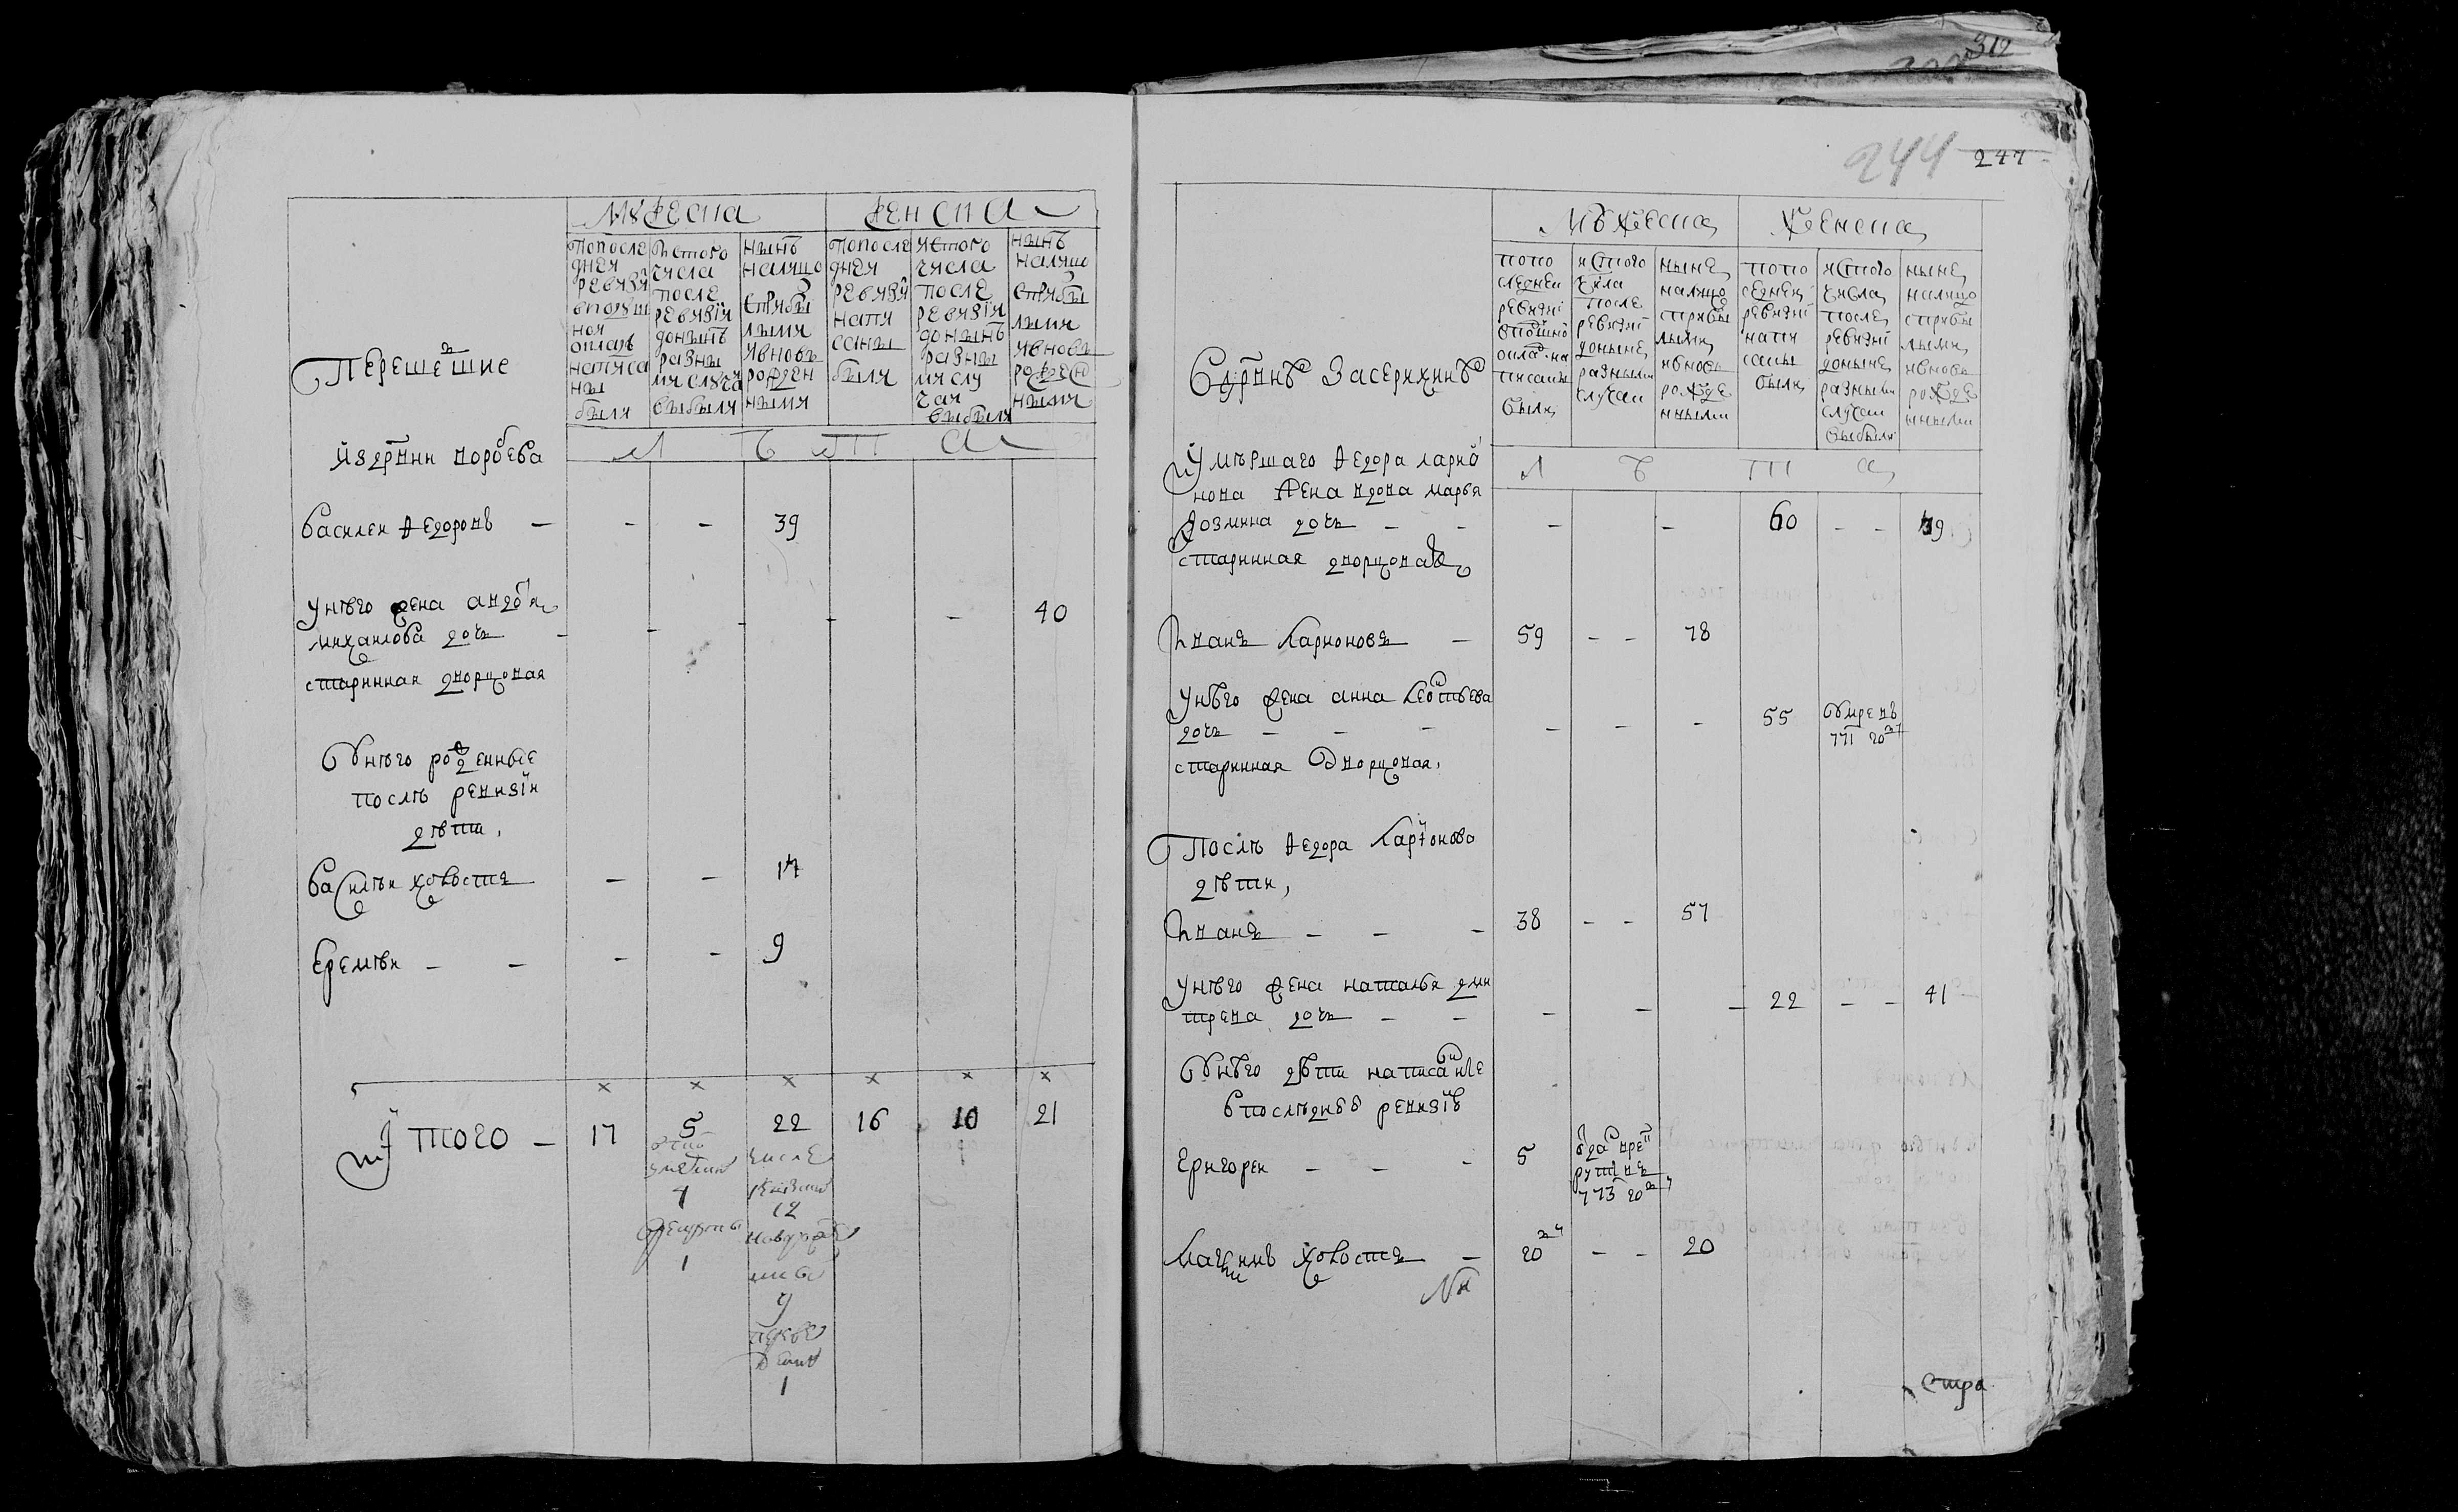 312
244 247
мужеска
женска
по после
дней
ревизіи
в подуш
ной
окладъ
написа
ны
были
ис того
числа
после
ревизіи
до нынѣ
разны
ми случа
выбыли
нынѣ
на лицо
с прибы
лыми
и вновь
рожден
ными
по после
дней
ревизіи
напи
саны
были
ис того
числа
после
ревизіи
до нынѣ
разны
ми слу
чаи
выбыли
нынѣ
на лицо
с прибы
лыми
и вновь
рожде
ными
Перешешие
из дрвни воробева
Л Ѣ Т А
Василеи Ѳедоровъ - - - 39
у него жена авдотя
михаилова дочь - - - - - 40
старинная дворцовая
От него рожденные
после ревизіи
дѣти,
Василѣи холостъ - - 17
Еремѣи - - - - 9
× × × × × ×
И того - 17 5 22 16 10 21
4
1
числе
12
9
1
Мужеска
Женска
по по
следнеи
ревизиі
в подушно
окла на
писаны
были
ис того
числа
после
ревизиі
до ныне
разными
случаи
ныне
на лицо
с прибы
лыми
и вновь
рожде
нными
по по
следнеи
ревизиі
напи
саны
были
ис того
числа
после
ревизиі
до ныне
разными
случаи
выбыли
ныне
на лицо
с прибы
лыми
и вновь
рожде
нными
Л Ѣ Т А
Умѣршаго Ѳедора ларио
нова жена вдова марья
Козмина дочь - - - - 60 - - 79
старинная дворцовая
Иванъ Ларионовъ - 59 - - 78
У нѣго жена анна Леонтьева
дочь - - - - - - 55 умре въ
771 годъ
старинная дворцовая,
Послѣ Ѳедора Ларионова
дѣти,
Иванъ - - - 38 - - 57
У нѣго жена наталья дми
трева дочь - - - - - 22 - - 41
От нѣго дѣти написанные
в послѣднѣй ревизіи
Григореи - - - 5 отда в ре
круты въ
773 годъ
Максимъ холостъ - год - - 20
стра